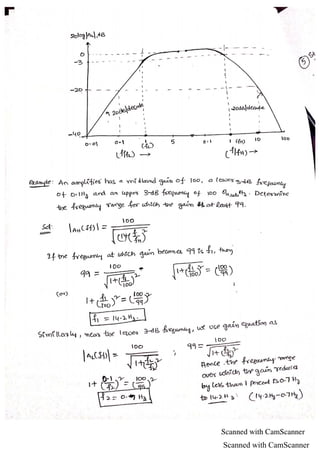 20log|AH|, dB
0
-3
-20
-40
20dB/decade
20dB/decade
0.01 0.1 1 5 0.1 1 10 100
(f/fL) → (f/fH) →
5
Example: An amplifier has a midband gain of 100, a lower 3-dB frequency
of 0.1Hz and an upper 3-dB frequency of 100 Determine
the frequency range for which the gain is at least 99.
Sol:
|AH(jf)| = 100 / √(1+(f/fH)²)
If the frequency at which gain becomes 99 is f1, then
99 = 100 / √(1+(f1/100)²) √(1+(f1/100)²) = (100/99)
(or) 1+(f1/100)² = (100/99)²
f1 = 14.2Hz
Similarly, near the lower 3-dB frequency, we use gain equation as
|AL(jf)| = 100 / √(1+(fL/f)²) ; 99 = 100 / √(1+(0.1/f2)²)
1+(0.1/f2)² = (100/99)²
f2 = 0.7 Hz
Hence the frequency range
over which the gain reduces
by less than 1 percent is 0.7 Hz
to 14.2Hz (14.2Hz-0.7Hz)
Scanned with CamScanner
Scanned with CamScanner